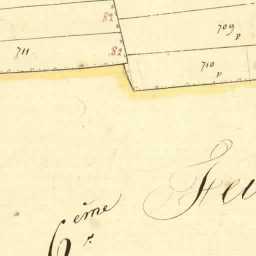 82
709
P
711
82
710
P
6ème